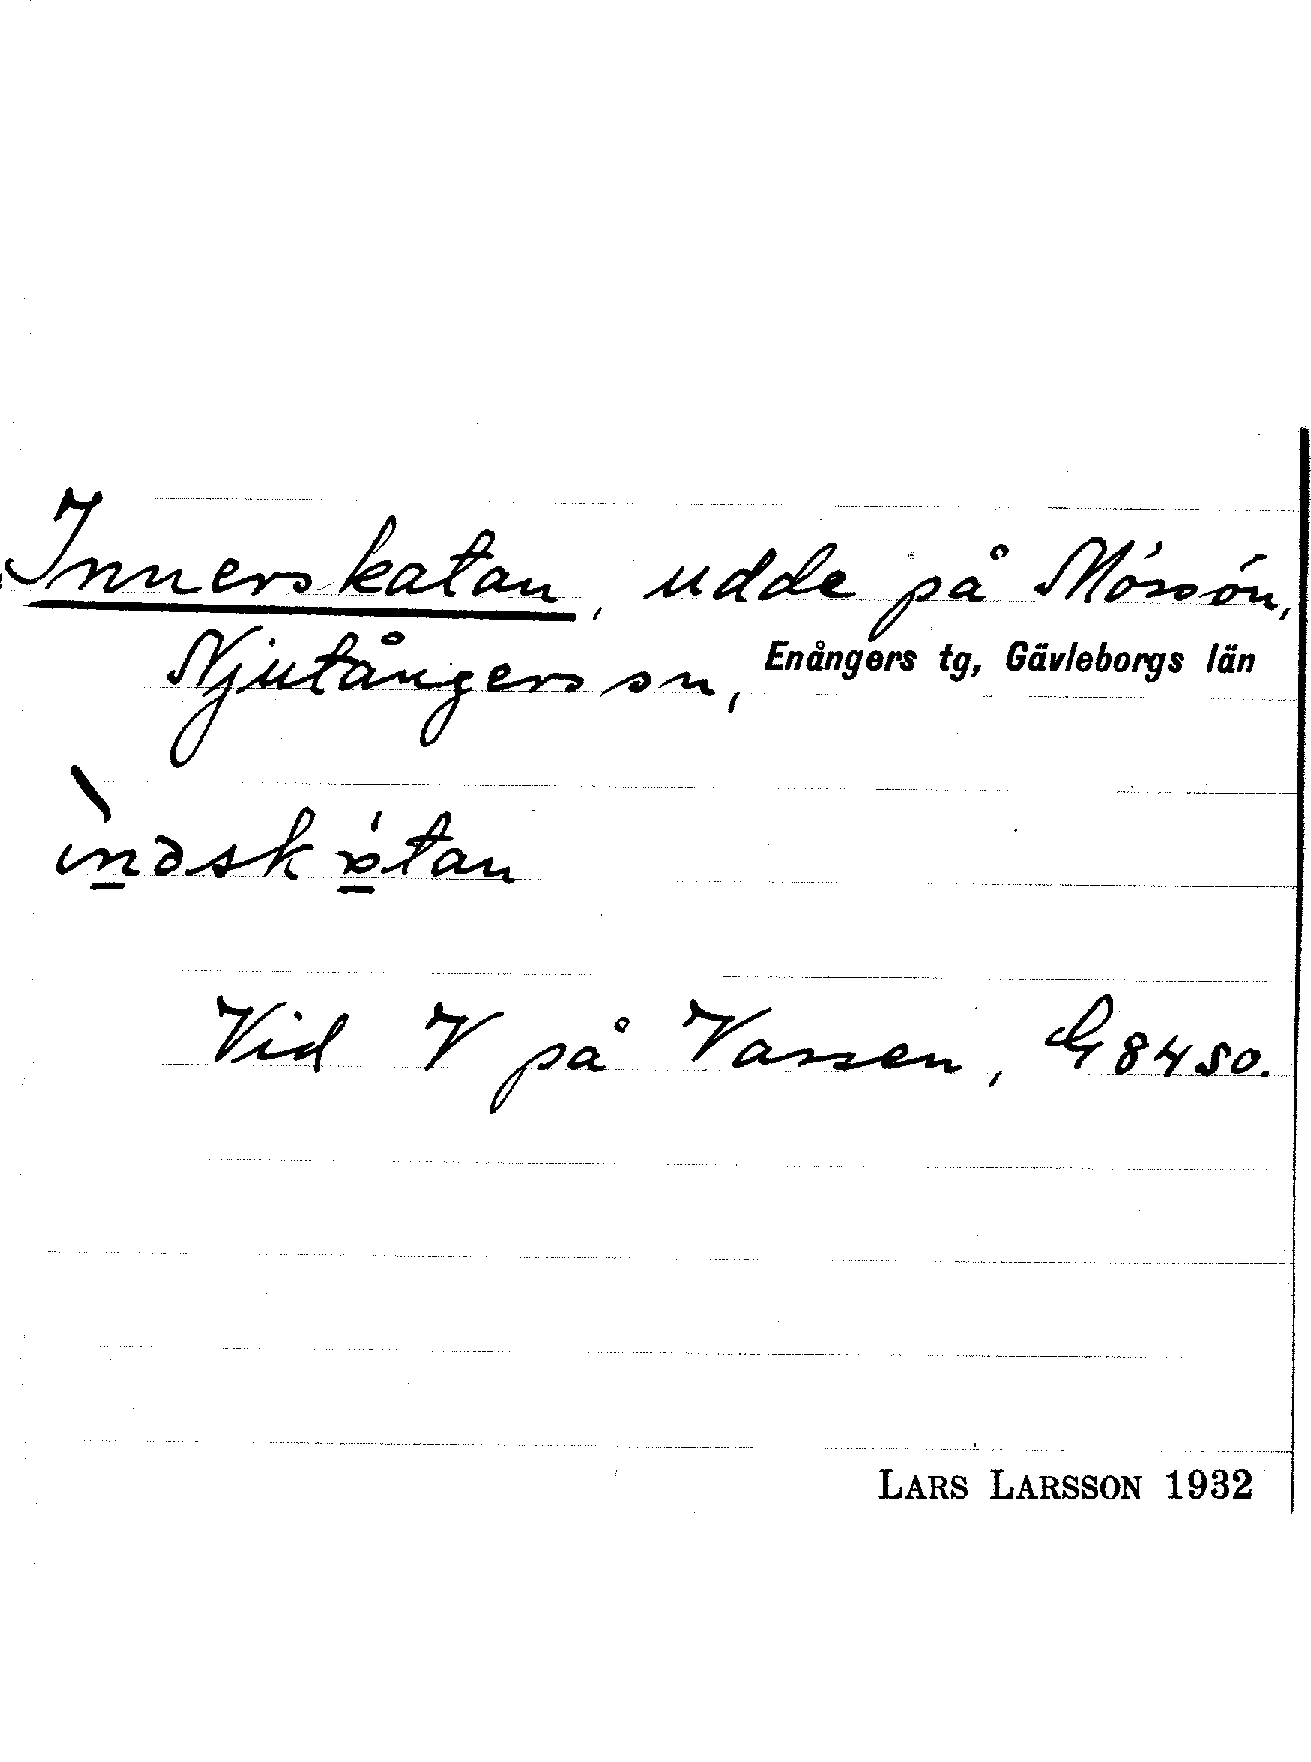 Innerskatan, udde på Mössön,
Njutångers sn, Enångers tg, Gävleborgs län
Vid V på Vassen, G8450.
LARS LARSSON 1932